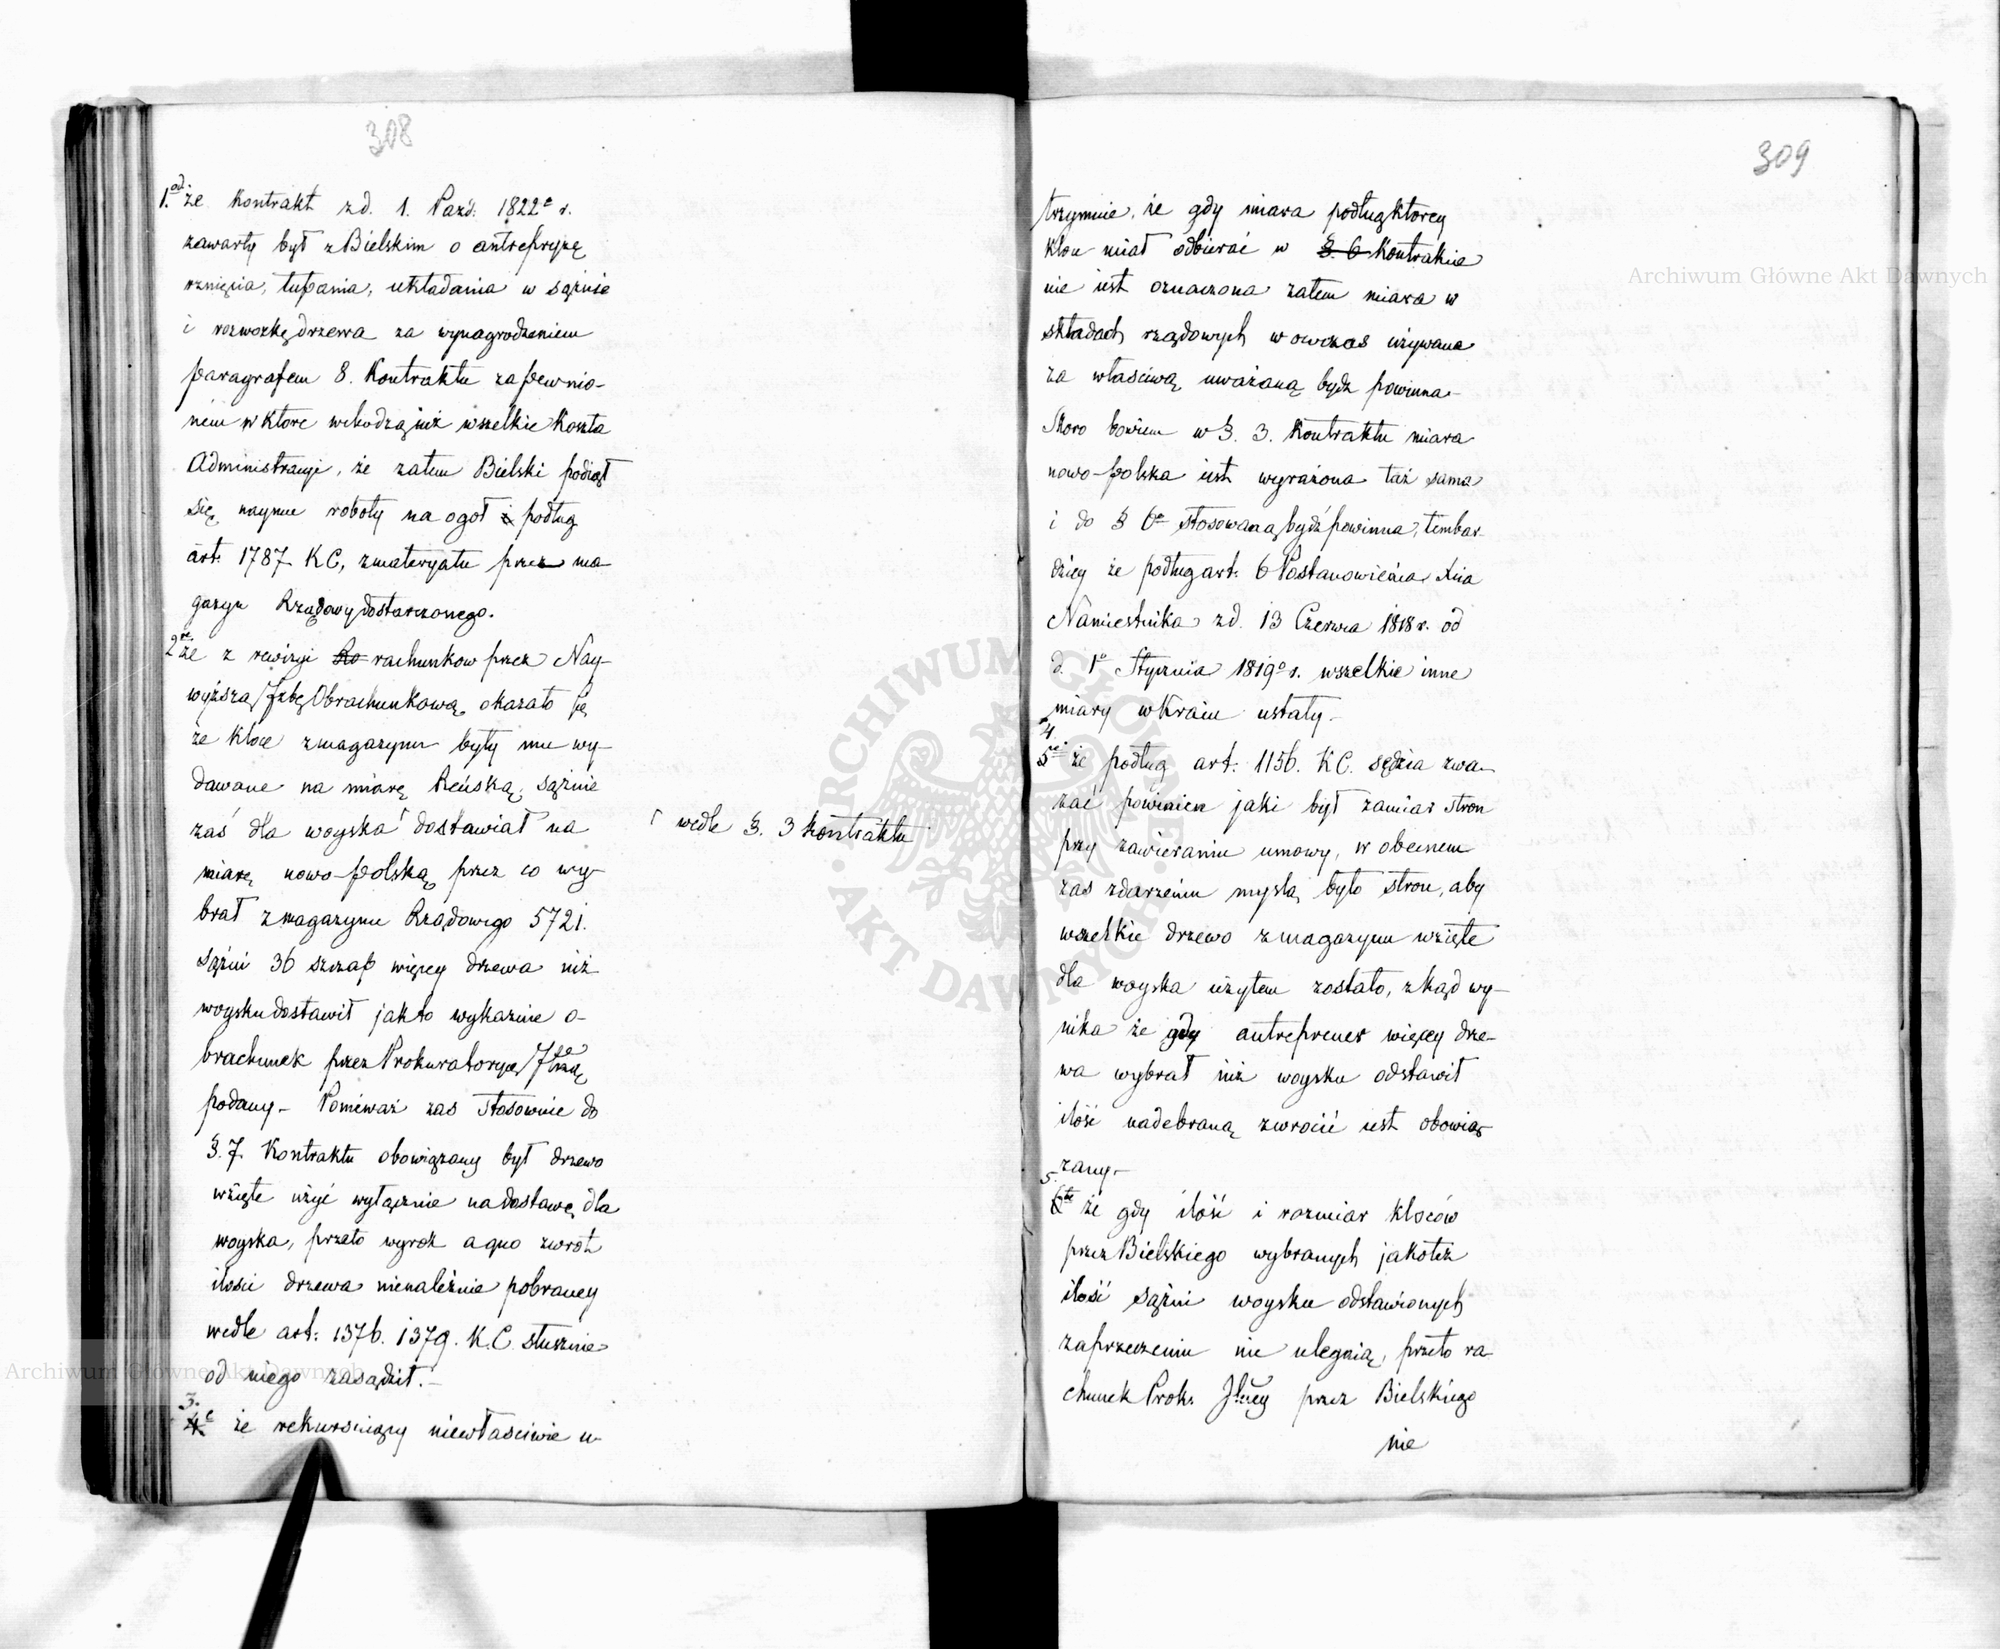 308
1.od że Kontrakt z d. 1. Pazd. 1822o r.
zawarty był z Bielskim o antrepryzę
rznięcia, łupania, układania w sążnie
i rozwozkę drzewa za wynagrodzeniem
paragrafem 8. Kontraktu zapewnio-
nem w ktore wchodzą iuż wszelkie Koszta
Administracyi, że zatem Bielski podiął
się naymu roboty na ogoł podług
art. 1787. KC, z materyału przez ma
gazyn Rządowy dostarczonego.
2re że z rewizyi Ra rachunkow przez Nay-
wyższą Izbę Obrachunkową okazało się
że Kloce z magazynu były mu wy-
dawane na miarę Reńską, sążnie
zaś dla woyska ⌈ dostawiał na
⌈ wedle §. 3 Kontraktu
miarę nowo-polską, przez co wy-
brał z magazynu Rządowego 5721.
sążni 36 szczap więcey drzewa niż
woysku dostawił jak to wykazuie o-
brachunek przez Prokuratoryę
podany- Ponieważ zas stosownie do
§. 7. Kontraktu obowiązany był drzewo
wzięte użyć wyłącznie na dostawę dla
woyska, przeto wyrok a quo zwrot
ilosci drzewa nienależnie pobraney
wedle art: 1376. 1379. K.C. słusznie
od niego zasądził.-
3. 4e że rekursuiący niewłasciwie u-
309
trzymuie, że gdy miara podług ktorey
kloce miał odbierać w §. 6 Kontrakcie
nie iest oznaczona zatem miara w
składach rządowych w owczas używana
za własciwą uważaną bydz powinna-
Skoro bowiem w §. 3. Kontraktu miara
nowo-polska iest wyrażona taż sama
i do § 6o stosowaną bydź powinna, tembar-
dziey że podług art: 6 Postanowienia Xcia
Namiestnika z d. 13 Czerwca 1818 r. od
d. 1o Stycznia 1819o r. wszelkie inne
miary w Kraiu ustały-
4. 5te że podług art: 1156. KC. sędzia zwa-
żać powinien jaki był zamiar stron
przy zawieraniu umowy, w obecnem
zas zdarzeniu myslą było stron, aby
wszelkie drzewo z magazynu wzięte
dla woyska użytem zostało, zkąd wy-
nika że gdy antreprener więcey drze-
wa wybrał niż woysku odstawił
ilość nadebraną zwrocić iest obowią-
zany.-
5. 6te że gdy ilość i rozmiar klocow
przez Bielskiego wybranych jakoteż
ilość sążni woysku odstawionych
zaprzeczeniu nie ulegaią, przeto ra-
chunek Prok. przez Bielskiego
nie
Archiwum Główne Akt Dawnych
Archiwum Główne Akt Dawnych
ARCHIWUM GŁÓWNE · AKT DAWNYCH ·